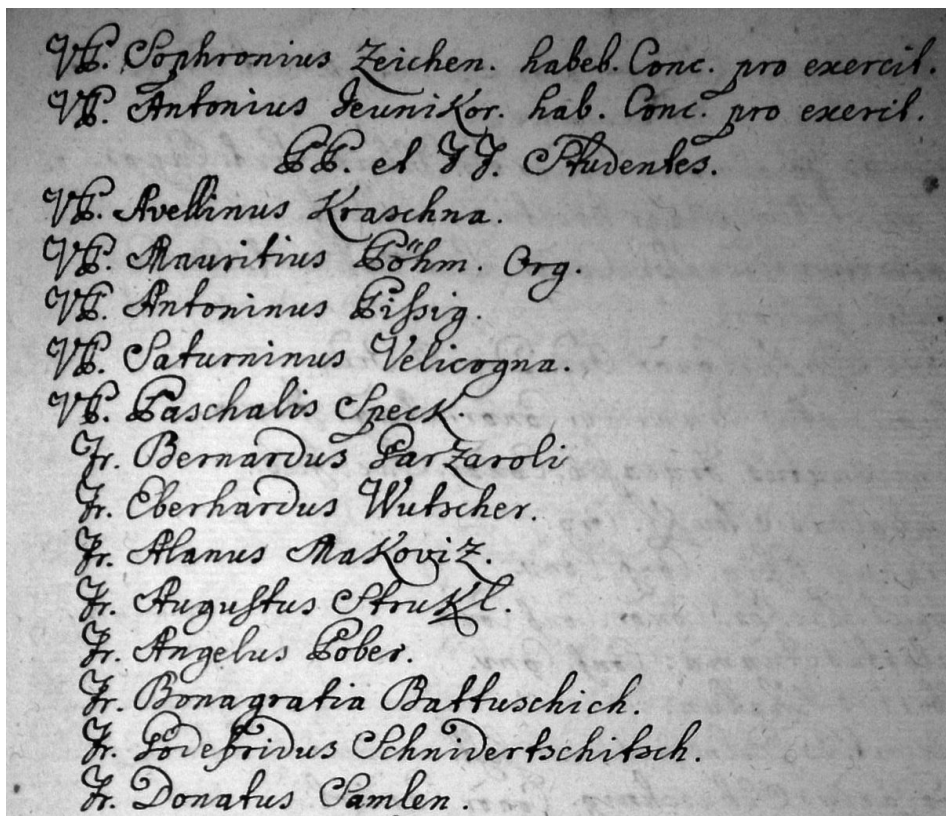 VP. Sophronius Zeichen. habeb. Conc. pro exercit.
VP. Antonius Jeunikor. hab. Conc. pro exerit.
PP. et FF. Studentes.
VP. Avellinus Kraschna.
VP. Mauritius Böhm. Org.
VP. Antoninus Pißig.
VP. Saturninus Velicogna.
VP. Paschalis Speck.
Fr. Bernardus Parzaroli
Fr. Eberhardus Wutscher.
Fr. Alanus Makoviz.
Fr. Augustus Strukl.
Fr. Angelus Pober.
Fr. Bonagratia Battuschich.
Fr. Godefridus Schnidertschitsch.
Fr. Donatus Samlen.